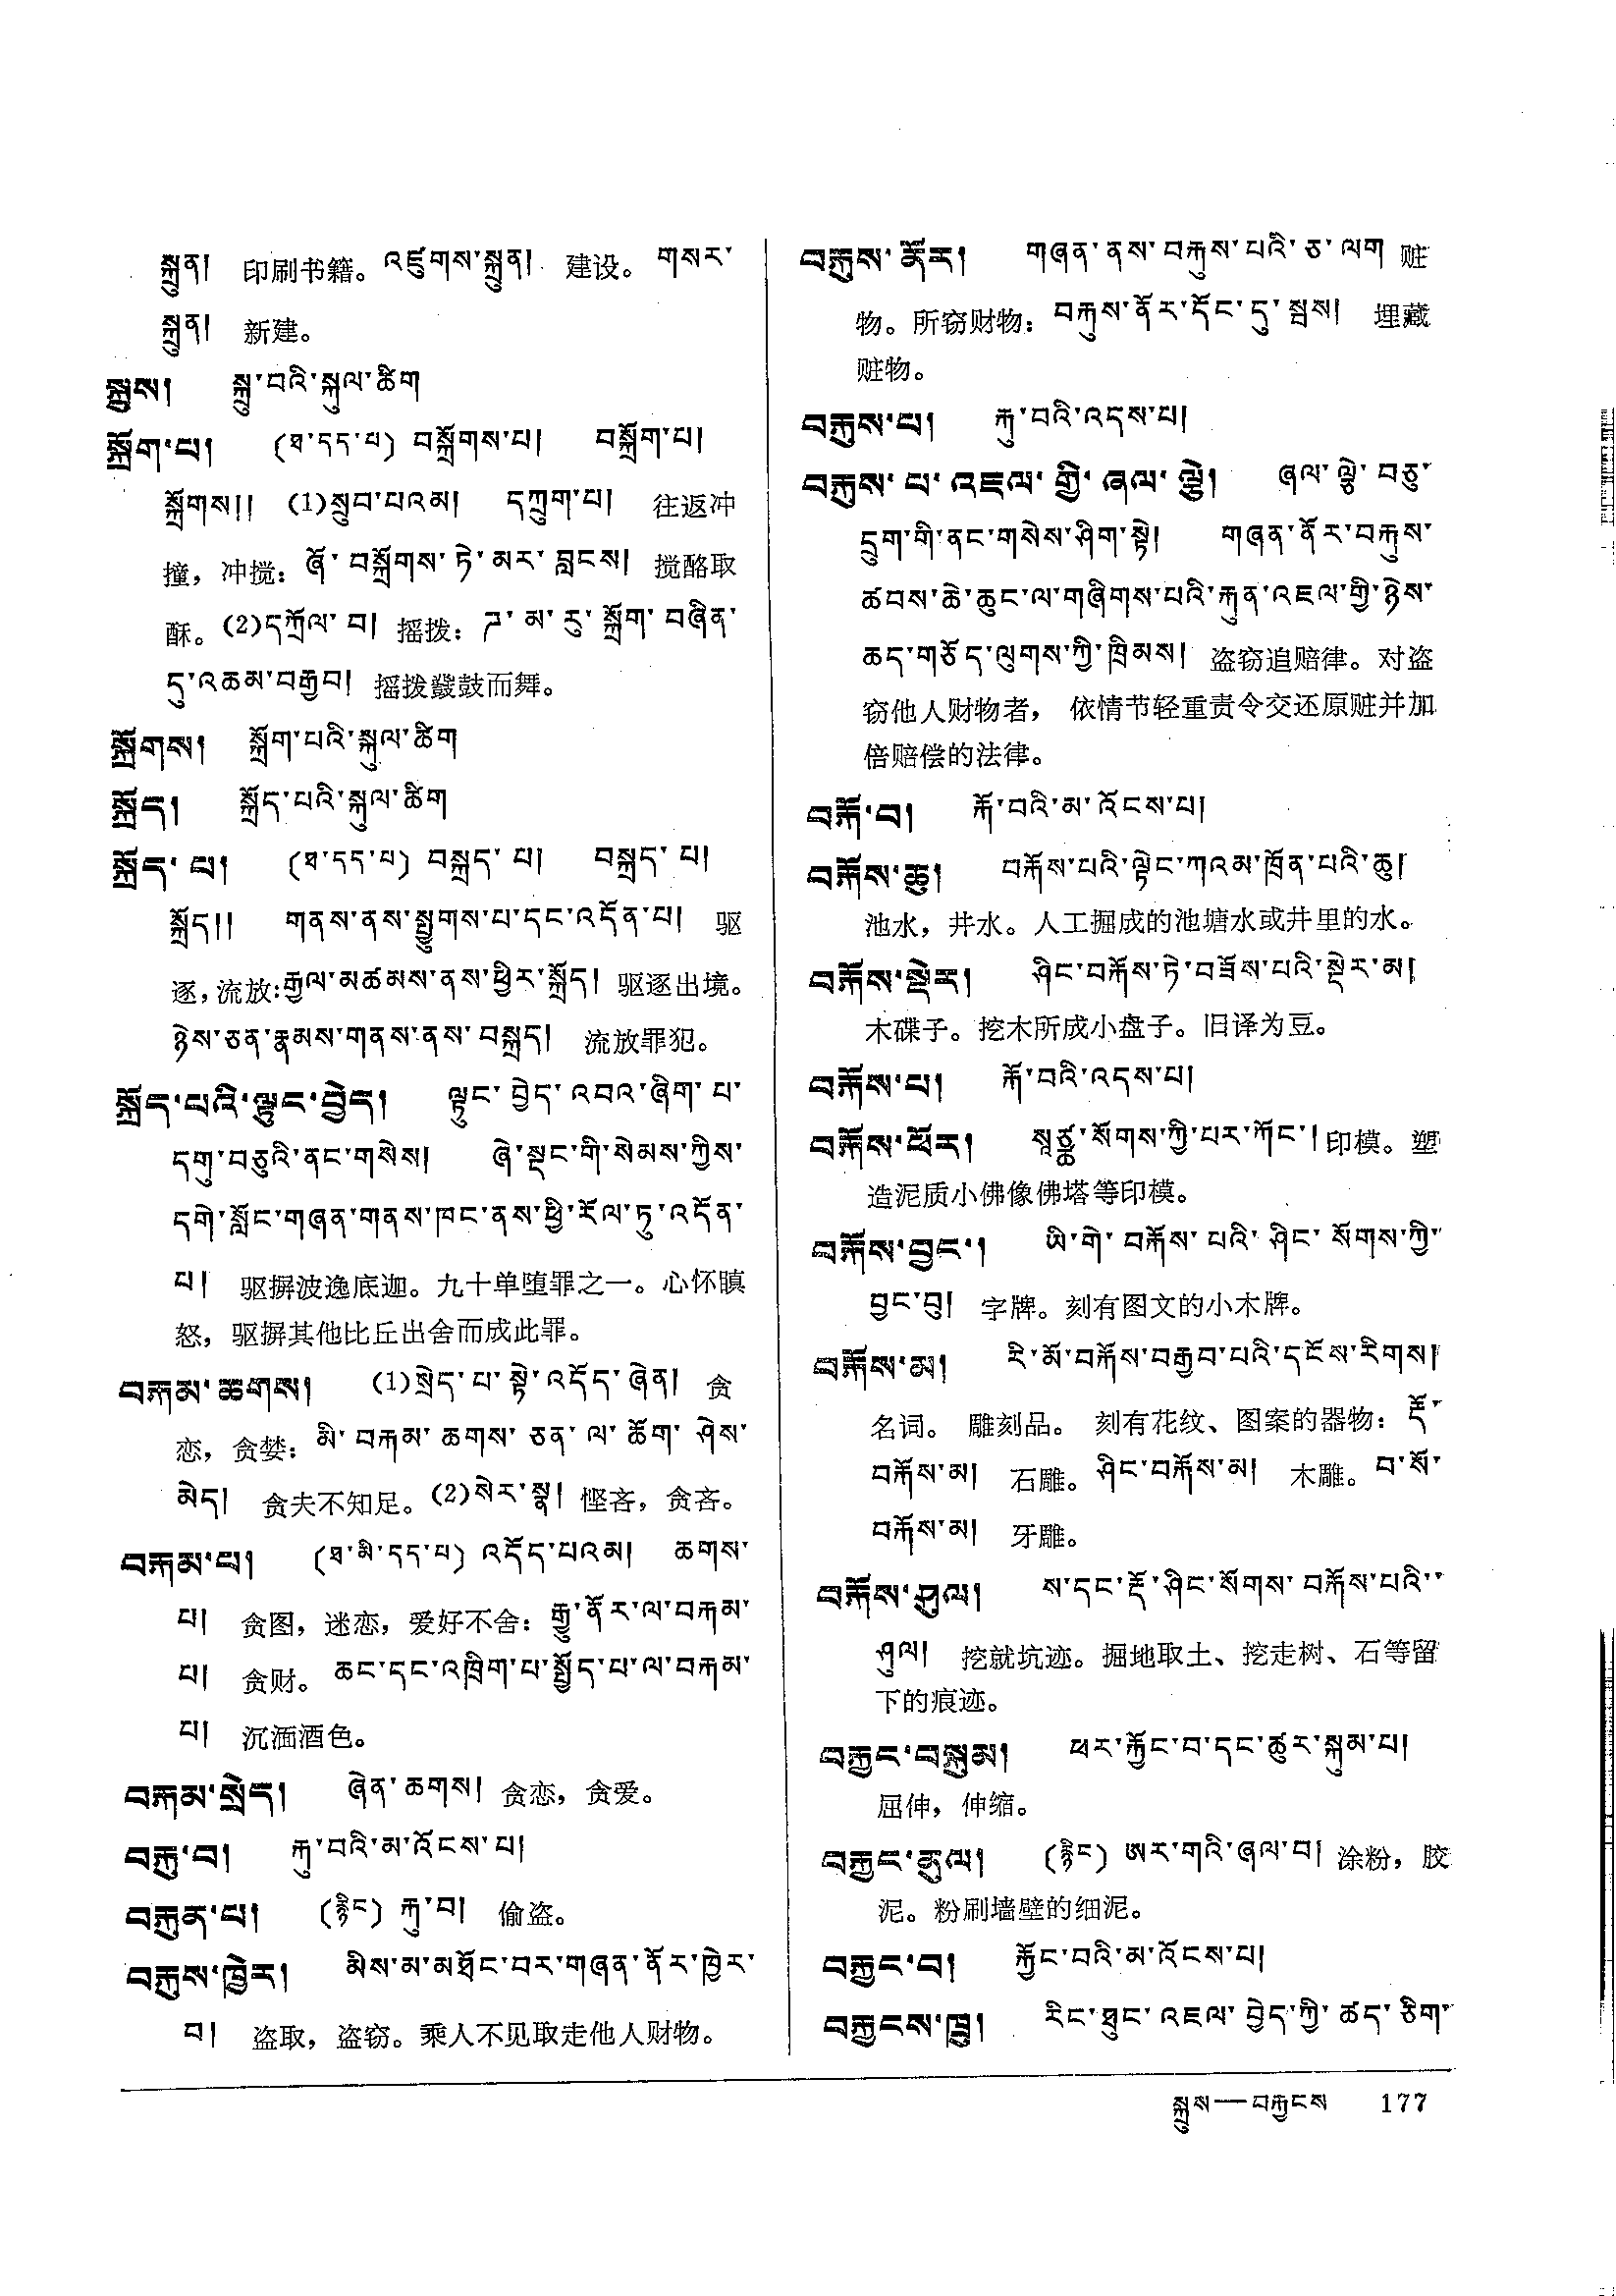 སྐྲུན། 印刷书籍。འཛུགས་སྐྲུན། 建设。 གསར་
སྐྲུན། 新建。
སྐྲུས། སྐྲུ་བའི་སྐུལ་ཚིག
སྐྲོག་པ། (ཐ་དད་པ) བསྐྲོགས་པ། བསྐྲོག་པ།
སྐྲོགས།། (1)སྲུབ་པའམ། དཀྲུག་པ། 往返冲
撞，冲搅：ཞོ་བསྐྲོགས་ཏེ་མར་བླངས། 搅酪取
酥。(2)དཀྲོལ་བ། 摇拨：ཌ་མ་རུ་སྐྲོག་བཞིན་
དུ་འཆམ་བརྒྱབ། 摇拨鼗鼓而舞。
སྐྲོགས། སྐྲོག་པའི་སྐུལ་ཚིག
སྐྲོད། སྐྲོད་པའི་སྐུལ་ཚིག
སྐྲོད་པ། (ཐ་དད་པ) བསྐྲད་པ། བསྐྲད་པ།
སྐྲོད།། གནས་ནས་སྤྱུགས་པ་དང་འདོན་པ། 驱
逐，流放：རྒྱལ་མཚམས་ནས་ཕྱིར་སྐྲོད། 驱逐出境。
ཉེས་ཅན་རྣམས་གནས་ནས་བསྐྲད། 流放罪犯。
སྐྲོད་པའི་ལྟུང་བྱེད། ལྟུང་བྱེད་འབའ་ཞིག་པ་
དགུ་བཅུའི་ནང་གསེས། ཞེ་སྡང་གི་སེམས་ཀྱིས་
དགེ་སློང་གཞན་གནས་ཁང་ནས་ཕྱི་རོལ་ཏུ་འདོན་
པ། 驱摒波逸底迦。九十单堕罪之一。心怀瞋
怒，驱摒其他比丘出舍而成此罪。
བརྐམ་ཆགས། (1)སྲེད་པ་སྟེ་འདོད་ཞེན། 贪
恋，贪婪：མི་བརྐམ་ཆགས་ཅན་ལ་ཆོག་ཤེས་
མེད། 贪夫不知足。(2)སེར་སྣ། 悭吝，贪吝。
བརྐམ་པ། (ཐ་མི་དད་པ) འདོད་པའམ། ཆགས་
པ། 贪图，迷恋，爱好不舍：རྒྱུ་ནོར་ལ་བརྐམ་
པ། 贪财。 ཆང་དང་འཁྲིག་པ་སྤྱོད་པ་ལ་བརྐམ་
པ། 沉湎酒色。
བརྐམ་སྲེད། ཞེན་ཆགས། 贪恋，贪爱。
བརྐུ་བ། རྐུ་བའི་མ་འོངས་པ།
བརྐུན་པ། (རྙིང) རྐུ་བ། 偷盗。
བརྐུས་ཁྱེར། མིས་མ་མཐོང་བར་གཞན་ནོར་ཁྱེར་
བ། 盗取，盗窃。乘人不见取走他人财物。
བརྐུས་ནོར། གཞན་ནས་བརྐུས་པའི་ཅ་ལག 赃
物。所窃财物：བརྐུས་ནོར་དོང་དུ་སྦས། 埋藏
赃物。
བརྐུས་པ། རྐུ་བའི་འདས་པ།
བརྐུས་པ་འཇལ་གྱི་ཞལ་ལྕེ། ཞལ་ལྕེ་བཅུ་
དྲུག་གི་ནང་གསེས་ཤིག་སྟེ། གཞན་ནོར་བརྐུས་
ཚབས་ཆེ་ཆུང་ལ་གཞིགས་པའི་རྐུན་འཇལ་གྱི་ཉེས་
ཆད་གཅོད་ལུགས་ཀྱི་ཁྲིམས། 盗窃追赔律。对盗
窃他人财物者， 依情节轻重责令交还原赃并加
倍赔偿的法律。
བརྐོ་བ། རྐོ་བའི་མ་འོངས་པ།
བརྐོས་ཆུ། བརྐོས་པའི་ལྟེང་ཀའམ་ཁྲོན་པའི་ཆུ།
池水，井水。人工掘成的池塘水或井里的水。
བརྐོས་སྡེར། ཤིང་བརྐོས་ཏེ་བཟོས་པའི་སྡེར་མ།
木碟子。挖木所成小盘子。旧译为豆。
བརྐོས་པ། རྐོ་བའི་འདས་པ།
བརྐོས་ཕོར། སཱཙྪ་སོགས་ཀྱི་པར་ཀོང་། 印模。塑
造泥质小佛像佛塔等印模。
བརྐོས་བྱང་། ཡི་གེ་བརྐོས་པའི་ཤིང་སོགས་ཀྱི་
བྱང་བུ། 字牌。刻有图文的小木牌。
བརྐོས་མ། རི་མོ་བརྐོས་བརྒྱབ་པའི་དངོས་རིགས།
名词。 雕刻品。 刻有花纹、图案的器物：རྡོ་
བརྐོས་མ། 石雕。ཤིང་བརྐོས་མ། 木雕。བ་སོ་
བརྐོས་མ། 牙雕。
བརྐོས་ཤུལ། ས་དང་རྡོ་ཤིང་སོགས་བརྐོས་པའི་
ཤུལ། 挖就坑迹。掘地取土、挖走树、石等留
下的痕迹。
བརྐྱང་བསྐུམ། ཕར་རྐྱོང་བ་དང་ཚུར་སྐུམ་པ།
屈伸，伸缩。
བརྐྱང་རྡུལ། (རྙིང) ཨར་གའི་ཞལ་བ། 涂粉，胶
泥。粉刷墙壁的细泥。
བརྐྱང་བ། རྐྱོང་བའི་མ་འོངས་པ།
བརྐྱངས་ཁྲུ། རིང་ཐུང་འཇལ་བྱེད་ཀྱི་ཚད་ཅིག་
སྐྲུས—བརྐྱངས 177